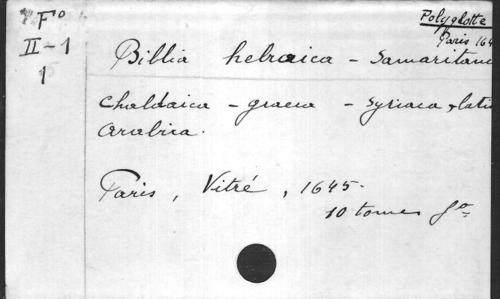 Polyglotte
Fo Paris 164
II-1
1
Biblia hebraica - Samaritana
Chaldaica - graeca - Syriaca, lati
Arabica.
Paris, Vitré, 1645-
10 tomes fo